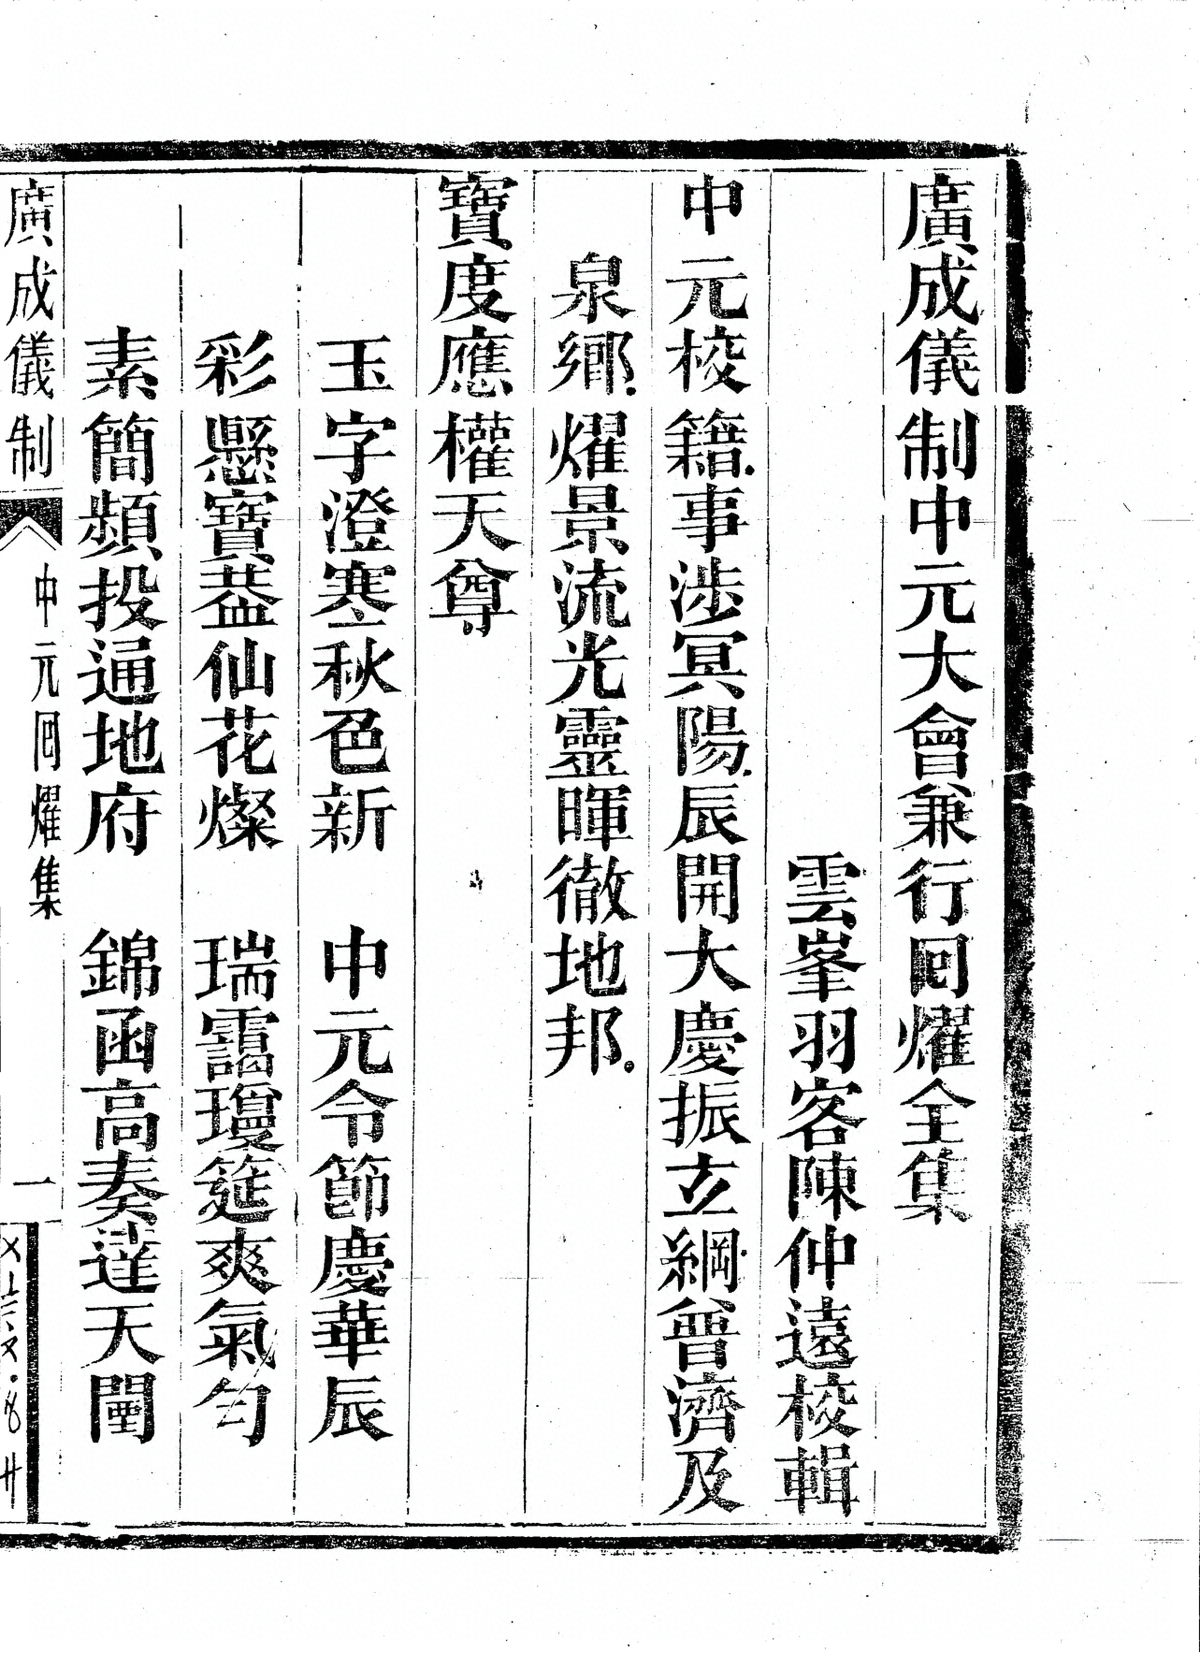 廣成儀制中元大會兼行回燿全集
雲峯羽客陳仲遠校輯
中元校籍事涉冥陽辰開大慶振立綱普濟及
泉鄉燿景流光靈暉徹地邦
寶度應權天尊
玉字澄寒秋色新　中元令節慶華辰
彩懸寶葢仙花燦　瑞靄瓊筵爽氣勻
素簡頻投通地府　錦函高奏達天闉
廣成儀制　中元回燿集　一